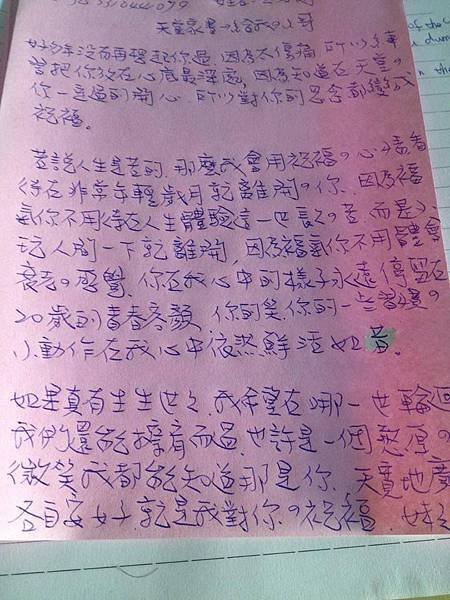 天堂家書~給我の小哥
好多年沒有再提起你過,因為太傷痛 所以
曾把你放在心底最深處,因為知道在天堂の
你一定過的開心.所以對你的思念都變成
祝福。
若說人生是苦的.那麼我會用祝福の心情看
待在非常年輕歲月就離開の你.因為福
氣你不用待在人生體驗這一世長久の苦.而是
玩人間一下就離開,因為福氣你不用體會
衰老の感覺.你在我心中的樣子永遠停留在
20歲的青春容顏.你的笑你的一些習慣の
小動作在我心中依然鮮活如昔。
如果真有生生世世.我希望在哪一世輪迴
我們還能擦肩而過.也許是一個憨厚の
微笑我都能知道那是你.天寬地廣
各自安好.就是我對你の祝福.妹